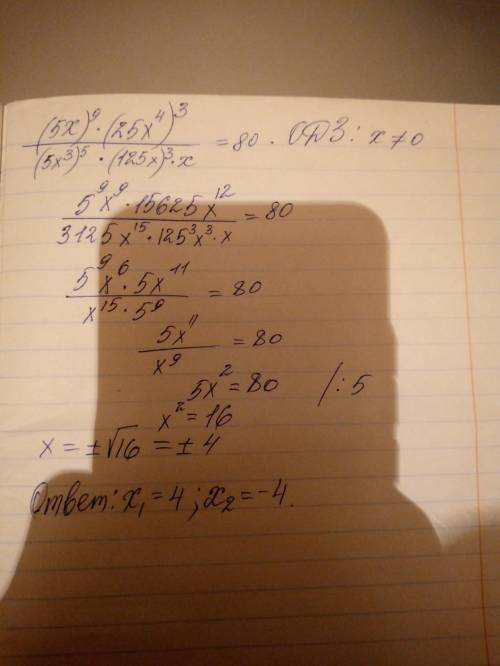 (5x)⁹ · (25x⁴)³ / (5x³)⁵ · (125x)³ · x = 80 . ОДЗ: x ≠ 0
5⁹x⁹ · 15625x¹² / 3125x¹⁵ · 125³x³ · x = 80
5⁹x⁶ · 5x¹¹ / x¹⁵ · 5⁹ = 80
5x¹¹ / x⁹ = 80
5x² = 80 /: 5
x² = 16
x = ±√16 = ± 4
Ответ: x₁ = 4 ; x₂ = -4.